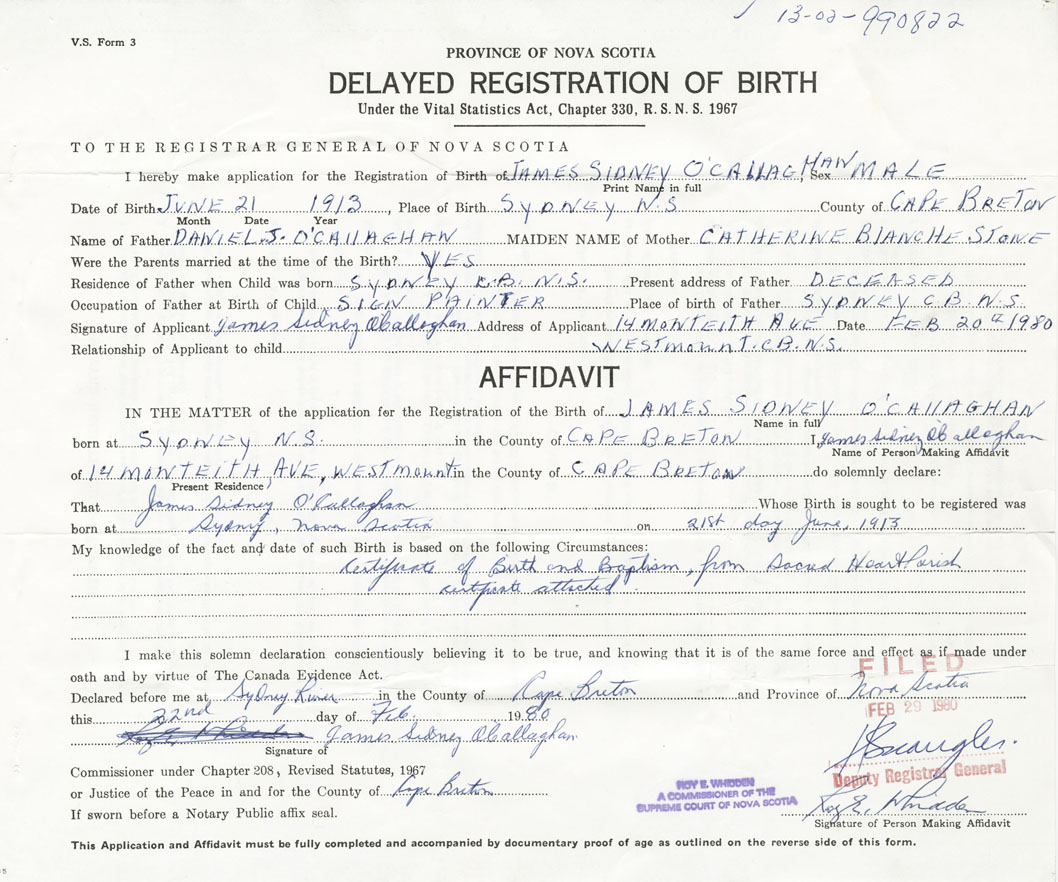 13-02-990822
V.S. Form 3
PROVINCE OF NOVA SCOTIA
DELAYED REGISTRATION OF BIRTH
Under the Vital Statistics Act, Chapter 330, R.S.N.S. 1967
TO THE REGISTRAR GENERAL OF NOVA SCOTIA
I hereby make application for the Registration of Birth of JAMES SIDNEY O'CALLAGHAN, Sex MALE
Print Name in full
Date of Birth JUNE 21 1913, Place of Birth SYDNEY N.S. County of CAPE BRETON
Month Date Year
Name of Father DANIEL J. O'CALLAGHAN MAIDEN NAME of Mother CATHERINE BLANCHE STONE
Were the Parents married at the time of the Birth? YES
Residence of Father when Child was born SYDNEY C.B. N.S. Present address of Father DECEASED
Occupation of Father at Birth of Child SIGN PAINTER Place of birth of Father SYDNEY C.B. N.S.
Signature of Applicant James Sidney O'Callaghan Address of Applicant 14 MONTEITH AVE Date FEB 20th 1980
Relationship of Applicant to child WESTMOUNT. C.B. N.S.
AFFIDAVIT
IN THE MATTER of the application for the Registration of the Birth of JAMES SIDNEY O'CALLAGHAN
Name in full
born at SYDNEY N.S. in the County of CAPE BRETON I, James Sidney O'Callaghan
Name of Person Making Affidavit
of 14 MONTEITH AVE, WESTMOUNT in the County of CAPE BRETON do solemnly declare:
Present Residence
That James Sidney O'Callaghan Whose Birth is sought to be registered was
born at Sydney, Nova Scotia on 21st day June, 1913
My knowledge of the fact and date of such Birth is based on the following Circumstances:
Certificate of Birth and Baptism, from Sacred Heart Parish
certificate attached.
I make this solemn declaration conscientiously believing it to be true, and knowing that it is of the same force and effect as if made under
oath and by virtue of The Canada Evidence Act.
FILED
Declared before me at Sydney River in the County of Cape Breton and Province of Nova Scotia
this 22nd day of Feb. 1980
FEB 29 1980
James Sidney O'Callaghan
Signature of
Commissioner under Chapter 208, Revised Statutes, 1967
Deputy Registrar General
or Justice of the Peace in and for the County of Cape Breton
ROY E. WHIDDEN
A COMMISSIONER OF THE
SUPREME COURT OF NOVA SCOTIA
Roy E. Whidden
If sworn before a Notary Public affix seal.
Signature of Person Making Affidavit
This Application and Affidavit must be fully completed and accompanied by documentary proof of age as outlined on the reverse side of this form.